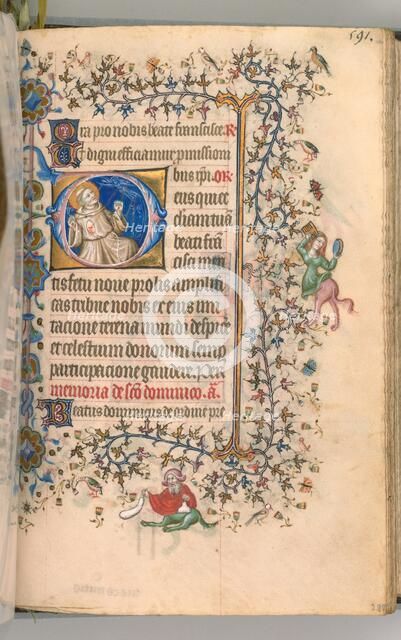 591.
Ora pro nobis beate francisce. R
Et digni efficiamur p missioni
bus xpi. OR
eus qui ec
clesiam tuā
beati frā
cisci meri
tis fetu noue prolis amplifi
cas tribue nobis ex eius imi
tacione terrena omnia despice
et celestium donorum semp
participacione gaudere. Per
memoria de sco dominico. a
Beatus dominicus de ordine pre
Heritage
Images